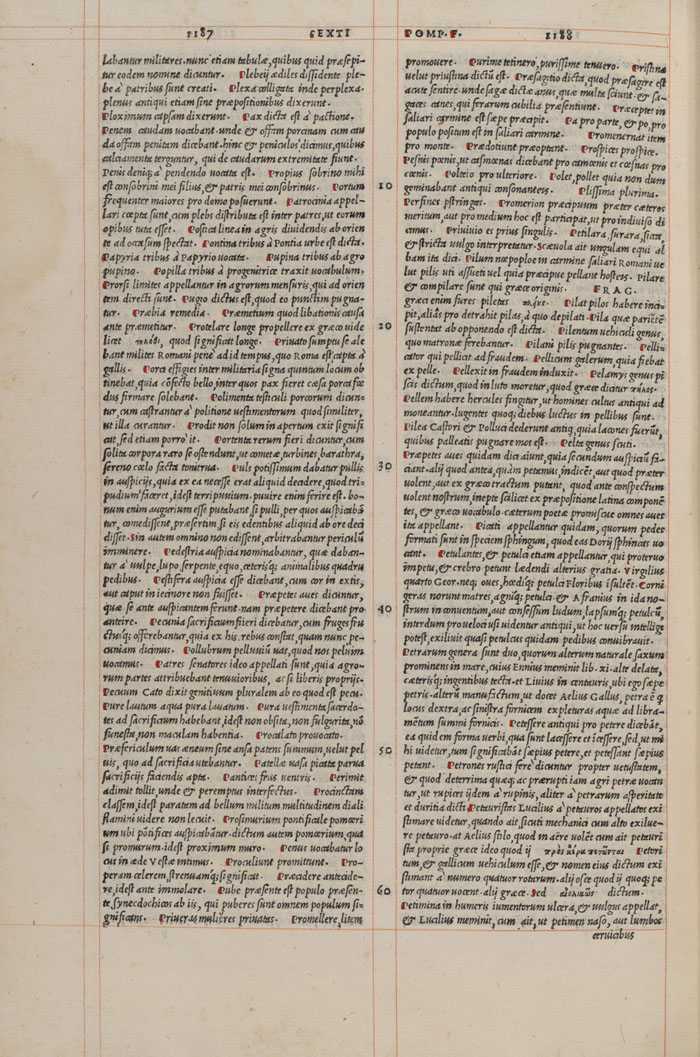 1187 SEXTI
labantur militares. nunc etiam tabulæ, quibus quid præscpi-
tur eodem nomine dicuntur. Plebeij ædiles dissidente ple-
be à patribus sunt creati. Plexa colligata inde perplexa.
plenus antiqui etiam sine præpositionibus dixerunt.
Ploximum capsam dixerunt. Pax dicta est à pactione.
Penem caudam uocabant. unde & offam porcinam cum cau
da offam penitam dicebant. hinc & peniculos dicimus, quibus
calciamenta terguntur, qui de caudarum extremitate fiunt.
Penis deniq; à pendendo uocata est. Propius sobrino mihi
est consobrini mei filius, & patris mei consobrinus. Portum 10
frequenter maiores pro domo posuerunt. Patrocinia appel-
lari cœpta sunt, cum plebs distributa est inter patres, ut eorum
opibus tuta esset. Postica linea in agris diuidendis ab orien
te ad occasum spectat. Pontina tribus à Pontia urbe est dicta.
Papyria tribus à Papyrio uocata. Pupina tribus ab agro
pupino. Popilla tribus à progenitrice traxit uocabulum.
Prorsi limites appellantur in agrorum mensuris, qui ad orien
tem directi sunt. Pugio dictus est, quod eo punctim pugna-
tur. Præbia remedia. Præmetium quod libationis causa
ante præmetitur. Protelare longe propellere ex græco uide 20
licet quod significat longe. Priuato sumptu se ale
bant milites Romani penè ad id tempus, quo Roma est capta à
gallis. Porci effigies inter militaria signa quintum locum ob
tinebat, quia cōfecto bello, inter quos pax fieret cæsa porca fœ
dus firmare solebant. Polimenta testiculi porcorum dicun-
tur, cum castrantur à politione uestimentorum quod similiter,
ut illa curantur. Prodit non solum in apertum exit signifi
cat, sed etiam porro it. Portenta rerum fieri dicuntur, cum
solita corpora raro se ostendunt, ut cometæ, turbines, barathra,
sereno cœlo facta tonitrua. Puls potissimum dabatur pullis 30
in auspicijs, quia ex ea necesse erat aliquid decidere, quod tri-
pudium faceret, idest terripuuium. puuire enim ferire est. bo-
num enim augurium esse putabant si pulli, per quos auspicabā
tur, comedissent, præsertim si eis edentibus aliquid ab ore deci
disset. Sin autem omnino non edissent, arbitrabantur periculū
imminere. Pedestria auspicia nominabantur, quæ daban-
tur à uulpe, lupo serpente, equo, cæterisq; animalibus quadru
pedibus. Pestifera auspicia esse dicebant, cum cor in extis,
aut caput in iecinore non fuisset. Præpetes aues dicuntur,
quæ se ante auspicantem ferunt. nam præpetere dicebant pro 40
anteire. Pecunia sacrificium fieri dicebatur, cum fruges fru
ctusq; offerebantur, quia ex his rebus constat, quam nunc pe-
cuniam dicimus. Pollubrum pelluuiū uas, quod nos peluim
uocamus. Patres senatores ideo appellati sunt, quia agro-
rum partes attribuebant tenuioribus, ac si liberis proprijs.
Pecuum Cato dixit genitiuum pluralem ab eo quod est pecu.
Pure lautum aqua pura lauatum. Pura uestimenta sacerdo-
tes ad sacrificium habebant, idest non obsita, non fulgurita, nō
funesta, non maculam habentia. Procitato prouocato.
Præfericulum uas æneum sine ansa patens summum, uelut pel 50
uis, quo ad sacrificia utebantur. Patellæ uasa picata parua
sacrificijs faciendis apta. Pantices frus uentris. Perimit
adimit tollit, unde & peremptus interfectus. Procinctam
classem, idest paratam ad bellum militum multitudinem diali
flamini uidere non licuit. Prosimurium pontificale pomœri
um ubi pōtifices auspicabātur. dictum autem pomœrium, qua
si promurum. idest proximum muro. Penus uocabatur lo
cus in æde Vestæ intimus. Procliuunt promittunt. Pro-
peram celerem, strenuamq; significat. Præcidere antecide-
re, idest ante immolare. Pube præsente est populo præsen- 60
te, synecdochicῶς ab iis, qui puberes sunt omnem populum si-
gnificans. Priueras mulieres priuatas. Promellere, litem
POMP. F. 1188
promouere. Purime tetinero, purissime tenuero. Pristina
uelut priustina dictū est. Præsagitio dicta, quod præsagire est
acute sentire. unde sagæ dictæ anus, quæ multa sciunt. & sa-
gaces canes, qui ferarum cubilia præsentiunt. Præceptet in
saliari carmine est sæpe præcipit. Pa pro parte, & po, pro
populo positum est in saliari carmine. Promenervat item
pro monet. Prædotiunt præoptant. Prospices prospice.
Pesnis pœnis, ut casmœnas dicebant pro camœnis et cœsuas pro
cœnis. Polteo pro ulteriore. Polet, pollet quia non dum
geminabant antiqui consonantes. Plissima plurima.
Perfines pstringas. Promerion præcipuum præter cæteros
meritum, aut pro medium hoc est participat, ut pro indiuiso di
cimus. Priuiuio es prius singulis. Petilara, surara, sicca,
& stricta uulgo interpretatur. Scæuola ait ungulam equi al
bam ita dici. Pilum nœpoploe in carmine saliari Romani ue
lut pilis uti assueti uel quia præcipue pellant hostes. Pilare
& compilare sunt qui græce originis. FRAG.
græca enim fures piletas Pilat pilos habere inci-
pit, aliās pro detrahit pilas, à quo depilati. Pila quæ parietē
sustentat ab opponendo est dicta. Pilentum uehiculi genus,
quo matronæ ferebantur. Pilani pilis pugnantes. Pelli-
cator qui pellicat ad fraudem. Pellicum galerum, quia fiebat
ex pelle. Pellexit in fraudem induxit. Pelamys genus pi
scis dictum, quod in luto moretur, quod græce dicitur πηλός.
Pellem habere hercules fingitur, ut homines cultus antiqui ad
moneantur. lugentes quoq; diebus luctus in pellibus sunt.
Pilea Castori & Polluci dederunt antiq. quia lacones fuerūt,
quibus palleatis pugnare mos est. Pelta genus scuti.
Præpetes aues quidam dici aiunt, quia secundum auspiciū fa-
ciant. alij quod antea, quàm petamus, indicēt, aut quod præter
uolent, aut ex græco tractum putant, quod ante conspectum
uolent nostrum, inepte scilicet ex præpositione latina componē
tes, & græco uocabulo. cæterum poetæ promiscue omnes aues
ita appellant. Picati appellantur quidam, quorum pedes
formati sunt in speciem sphingum, quod eas Dorij sphicas uo
cant. Petulantes, & petula etiam appellantur, qui proteruo
impetu, & crebro petunt lædendi alterius gratia. Virgilius
quarto Geor. neq; oues, hœdiq; petulci floribus isultēt. Corni
geras norunt matres, agniq; petulci. & Afranius in ida no-
strum in conuentum, aut confessim ludum, lapsumq; petulcū,
interdum pro uelocius uti uidentur antiqui, ut hoc uersu intellige
potest, exiliuit quasi petulcus quidam pedibus conuibrauit.
Petrarum genera sunt duo, quorum alterum naturale saxum
prominens in mare, cuius Ennius meminit lib. xi. alte delata,
cæterisq; ingentibus tecta. et Liuius in centauris, ubi ego sæpe
petris. alterū manufactum, ut docet Aelius Gallus, petra ē q̄
locus dextra, ac sinistra fornicem expleturas aquæ ad libra-
mētum summi fornicis. Petessere antiqui pro petere dicebāt,
ea quidem forma uerbi, qua sunt lacessere et icessere, sed, ut mi
hi uidetur, tum significabāt sæpius petere, et petessant sæpius
petant. Petrones rustici ferè dicuntur propter uetustatem,
& quod deterrima quæq; ac prærupti iam agri petræ uocan
tur, ut rupices ijdem à rupinis, aliter à petrarum asperitate
et duritia dicti. Petauristas Lucilius à petauros appellatos exi
stimare uidetur, quando ait, sicuti mechanici cum alto exilue-
re petauro. at Aelius stilo, quod in aëre uolēt cum ait petauri
sta proprie græce ideo quod ij πρὸς ἀέρα Petori
tum, & gallicum uehiculum esse, & nomen eius dictum exi
stimant à numero quatuor rotarum. alij osce quod ij quoq; pe
tor quatuor uocent. alij græce. sed dictum.
Petimina in humeris iumentorum ulcera, & uulgus appellat,
& Lucilius meminit, cum ait, ut petimen naso, aut lumbos
ceruicibus